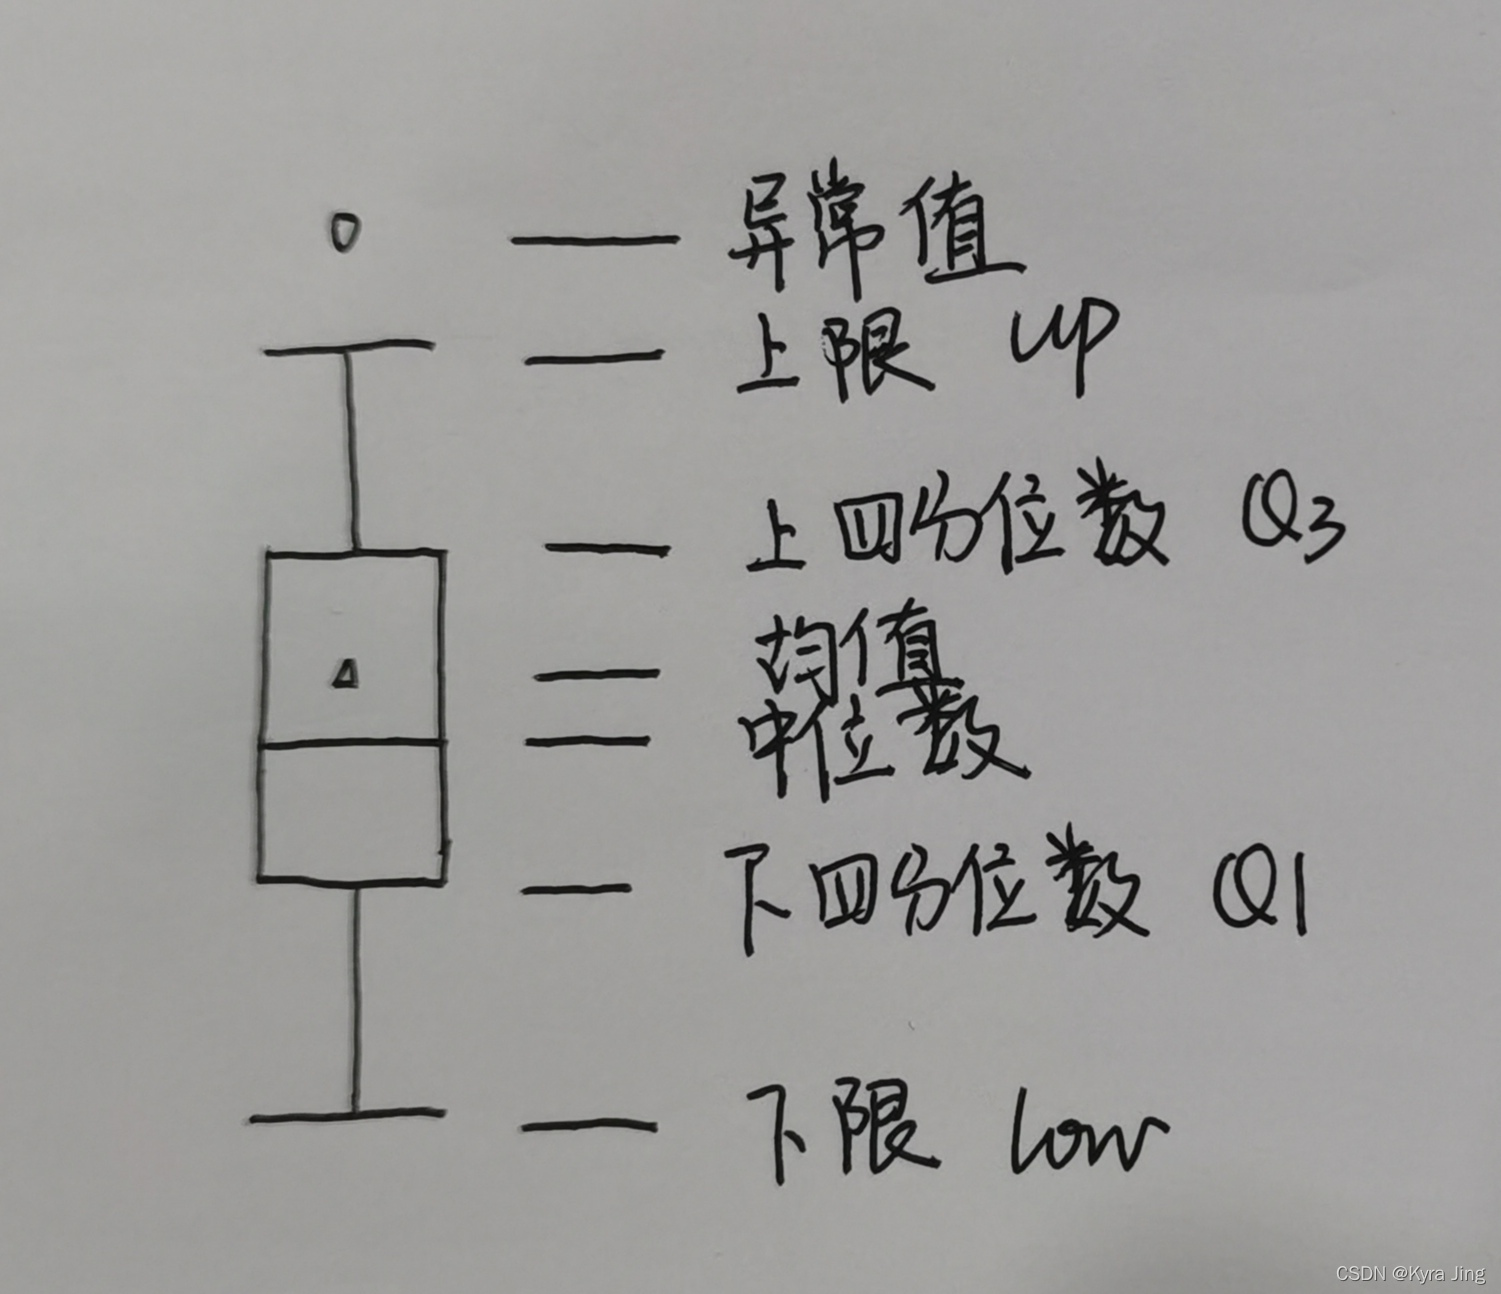 异常值
上限 up
上四分位数 Q3
均值
中位数
下四分位数 Q1
下限 low
CSDN @Kyra Jing